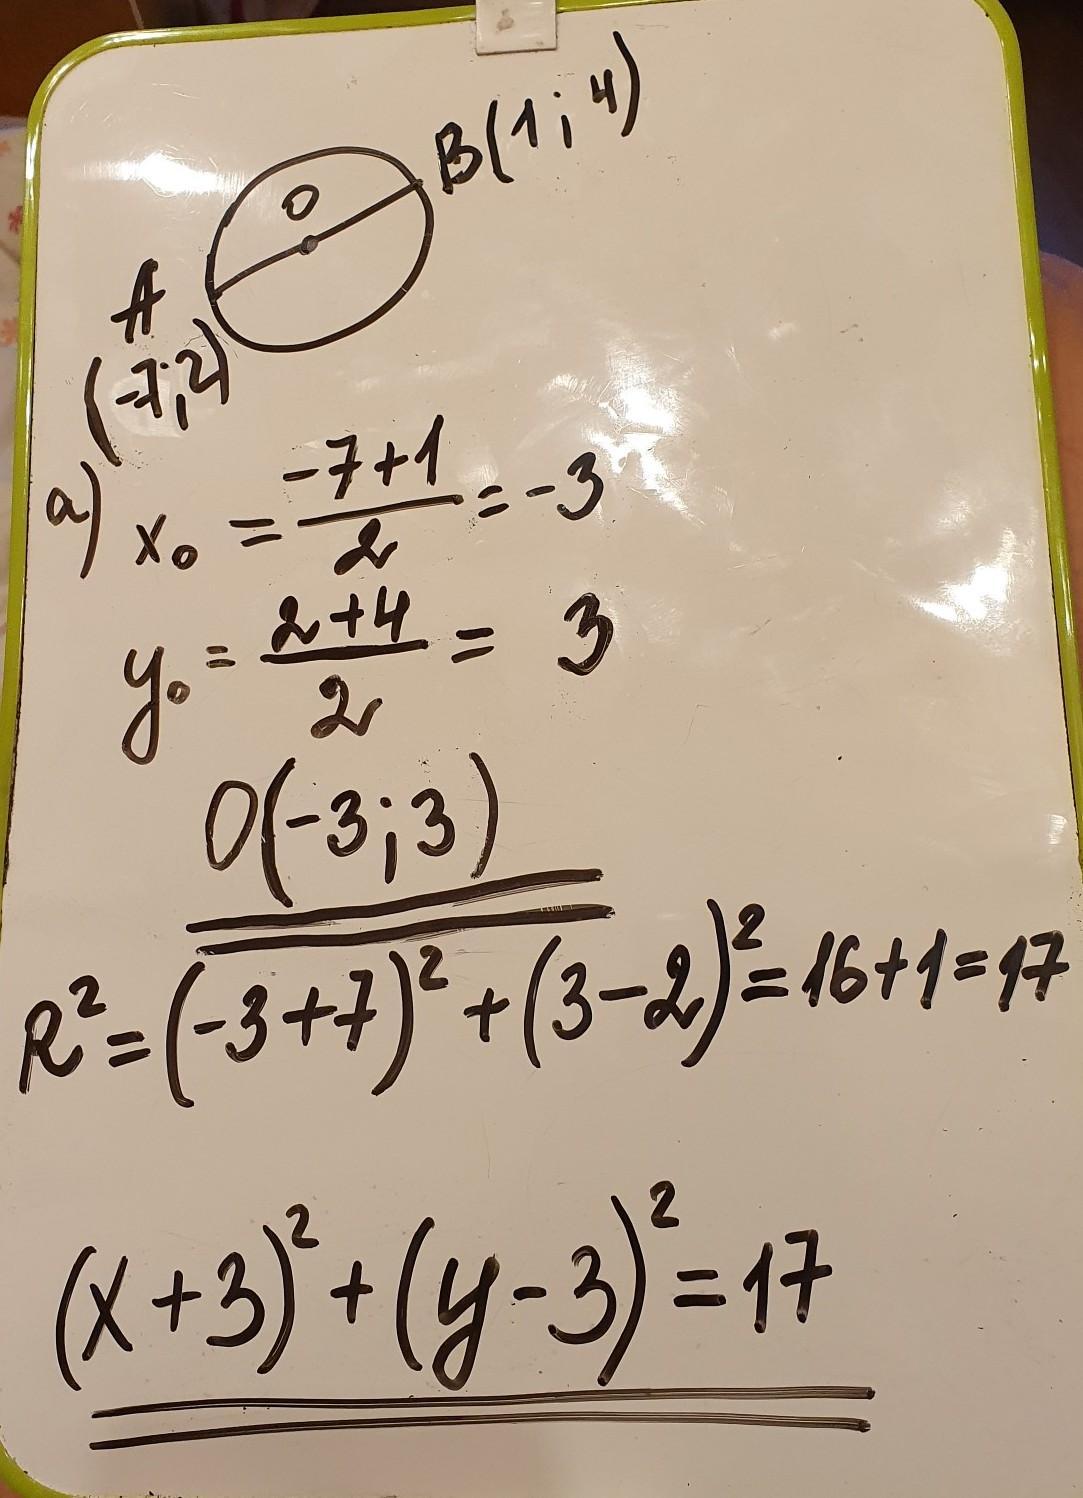 B(1; 4)
O
A
(-7; 2)
a) x₀ = (-7+1)/2 = -3
y₀ = (2+4)/2 = 3
O(-3; 3)
R² = (-3+7)² + (3-2)² = 16+1 = 17
(x+3)² + (y-3)² = 17